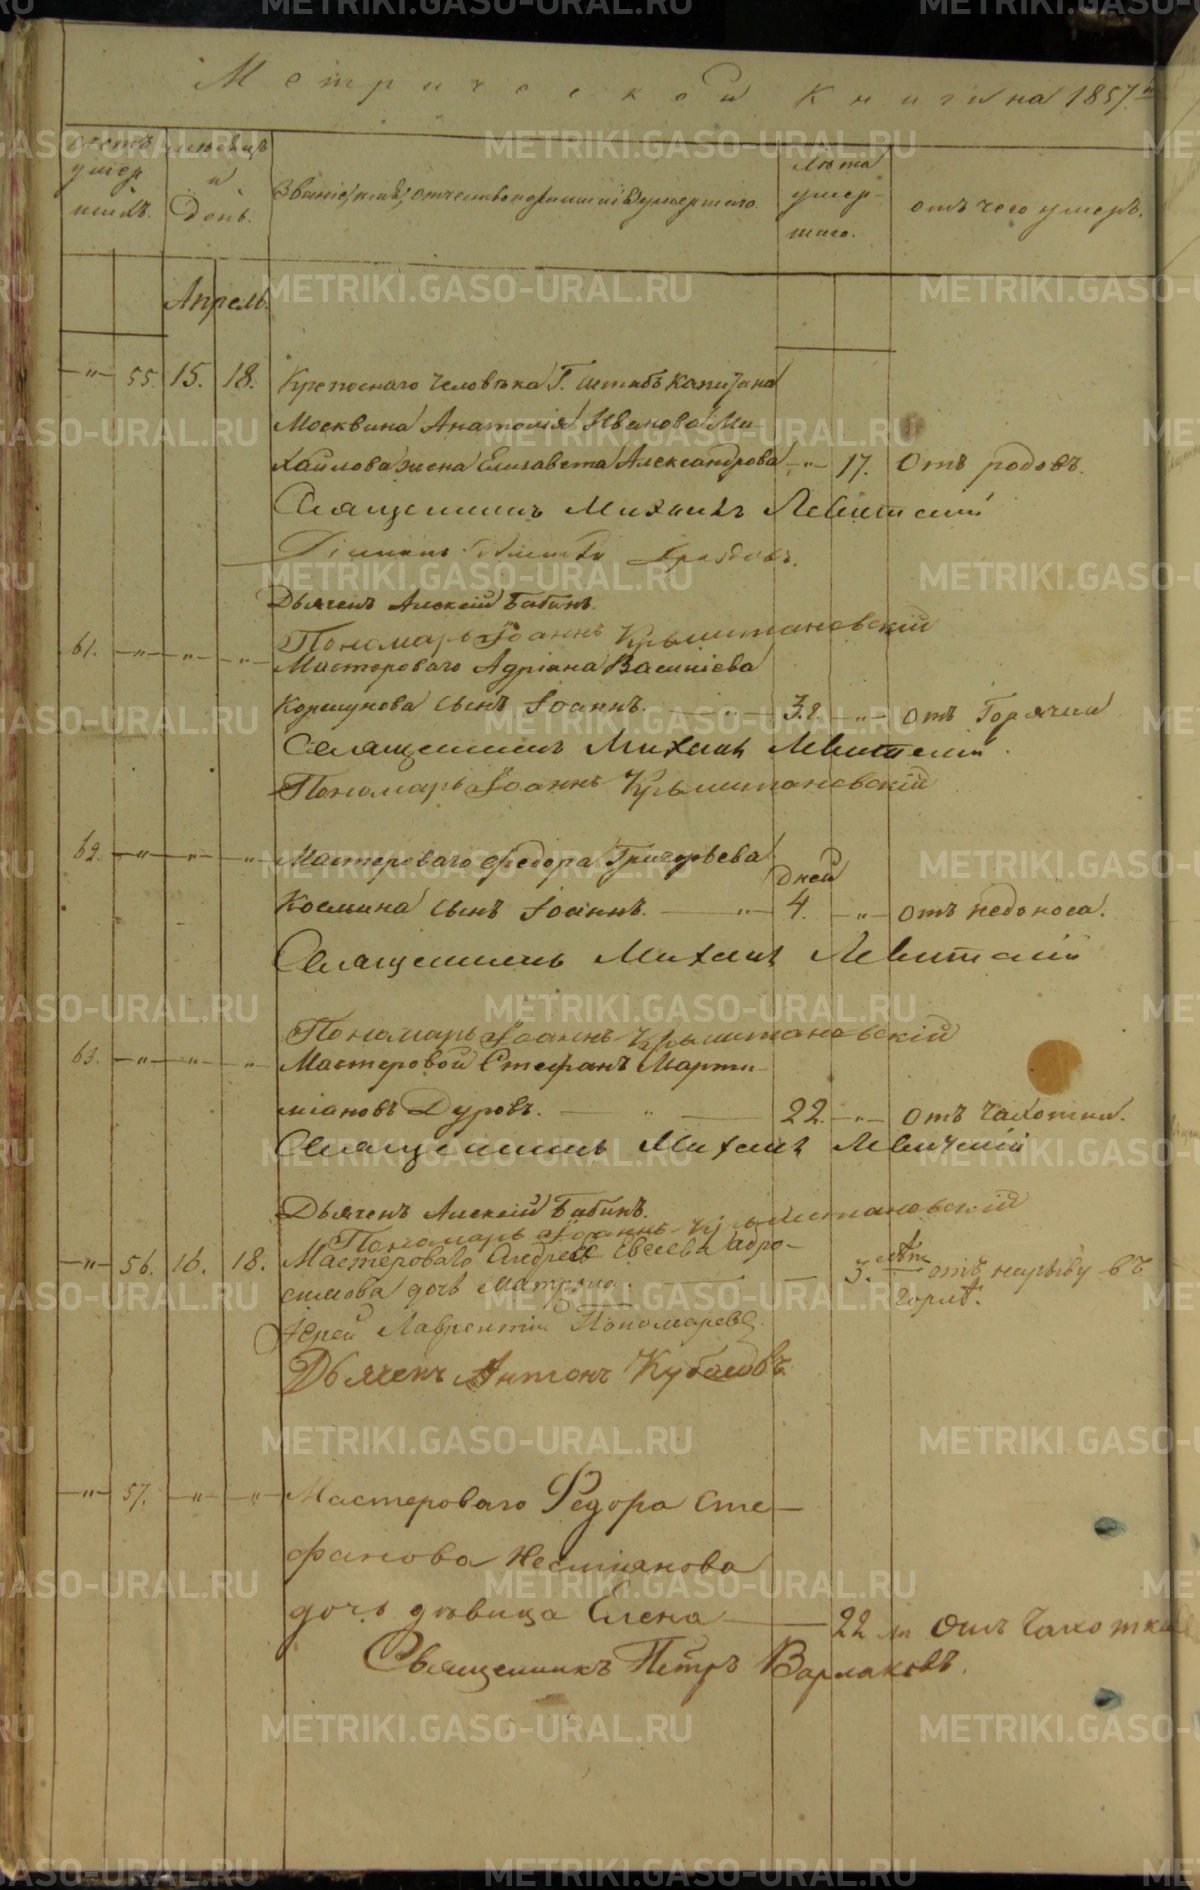 Метрической книги на 1857 й
счетъ умер шихъ.
месяцъ и День.
Званiе, имя, отчество и фамилiя умершаго.
лѣта умер- шаго.
отъ чего умеръ.
Апрель.
-"- 55. 15. 18. Крепоснаго человѣка Г. штабъ Капитана
Москвина Анатолiя Иванова Ми-
хайлова жена Елизавета Александрова -"- 17. Отъ родовъ.
Священникъ Михаилъ Левитскiй
Дьячекъ Алексiй Бабинъ.
Пономарь Iоаннъ Крыштановскiй
61. -"- -"- " Мастероваго Адрiана Василiева
Коршунова сынъ Iоаннъ. " 38. -"- отъ Горячки
Священникъ Михаилъ Левитскiй.
Пономарь Iоаннъ Крыштановскiй
62. -"- -"- -"- Мастероваго Федора Григорьева
Космина сынъ Iоаннъ. " дней 4. -"- отъ недоноса.
Священникъ Михаилъ Левитскiй
Пономарь Iоаннъ Крыштановскiй
63. -"- -"- " Мастеровой Стефанъ Марти-
мiановъ Дуровъ. " 22. -"- отъ чахотки.
Священникъ Михаилъ Левитскiй
Дьячекъ Алексiй Бабинъ.
Пономарь Iоаннъ Крыштановскiй
-"- 56. 16. 18. Мастероваго Андрея Евсева Абро-
симова дочь Матрона. 3. лѣт отъ нарыву въ
горлѣ.
Iерей Лаврентiй Пономаревъ.
Дьячекъ Антонъ Кубасовъ.
-"- 57. -"- -"- Мастероваго Федора Сте-
фанова
дочь дѣвица Елена 22 лѣ отъ Чахотки
Священникъ Петръ Варлаковъ.
METRIKI.GASO-URAL.RU